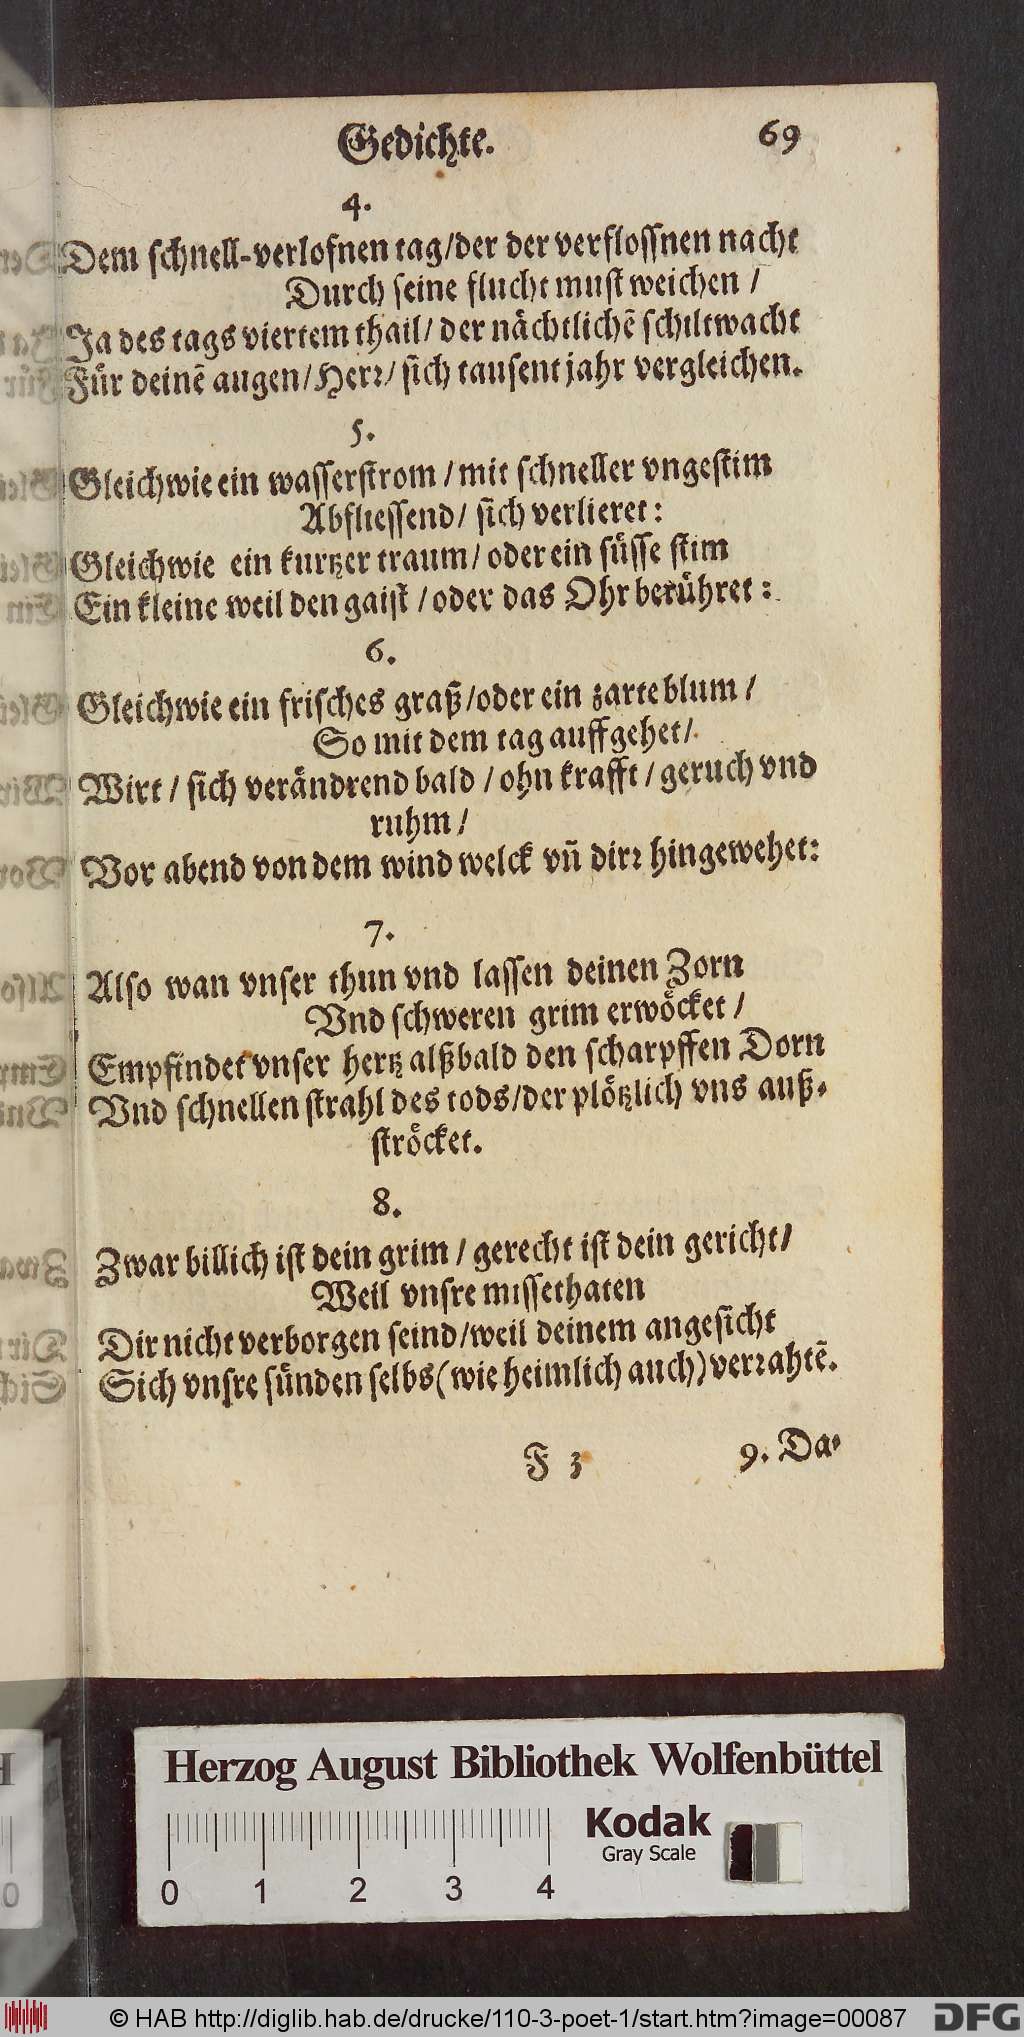 Gedichte. 69
4.
Dem schnell-verlofnen tag/der der verflossnen nacht
Durch seine flucht must weichen /
Ja des tags viertem thail/ der nächtlichē schiltwacht
Für deinē augen/Herꝛ/ sich tausent jahr vergleichen.
5.
Gleichwie ein wasserstrom /mit schneller vngestim
Abfliessend/ sich verlieret:
Gleichwie ein kurtzer traum/ oder ein süsse stim
Ein kleine weil den gaist /oder das Ohr berühret:
6.
Gleichwie ein frisches graß/oder ein zarte blum /
So mit dem tag auffgehet/
Wirt / sich verändrend bald / ohn krafft / geruch vnd
ruhm /
Vor abend von dem wind welck vñ dirꝛ hingewehet:
7.
Also wan vnser thun vnd lassen deinen Zorn
Vnd schweren grim erwöcket /
Empfindet vnser hertz alßbald den scharpffen Dorn
Vnd schnellen strahl des tods/der plötzlich vns auß-
ströcket.
8.
Zwar billich ist dein grim / gerecht ist dein gericht/
Weil vnsre missethaten
Dir nicht verborgen seind/weil deinem angesicht
Sich vnsre sünden selbs (wie heimlich auch) verꝛahtē.
F 3 9. Da-
Herzog August Bibliothek Wolfenbüttel
Kodak
Gray Scale
0 1 2 3 4
© HAB http://diglib.hab.de/drucke/110-3-poet-1/start.htm?image=00087 DFG